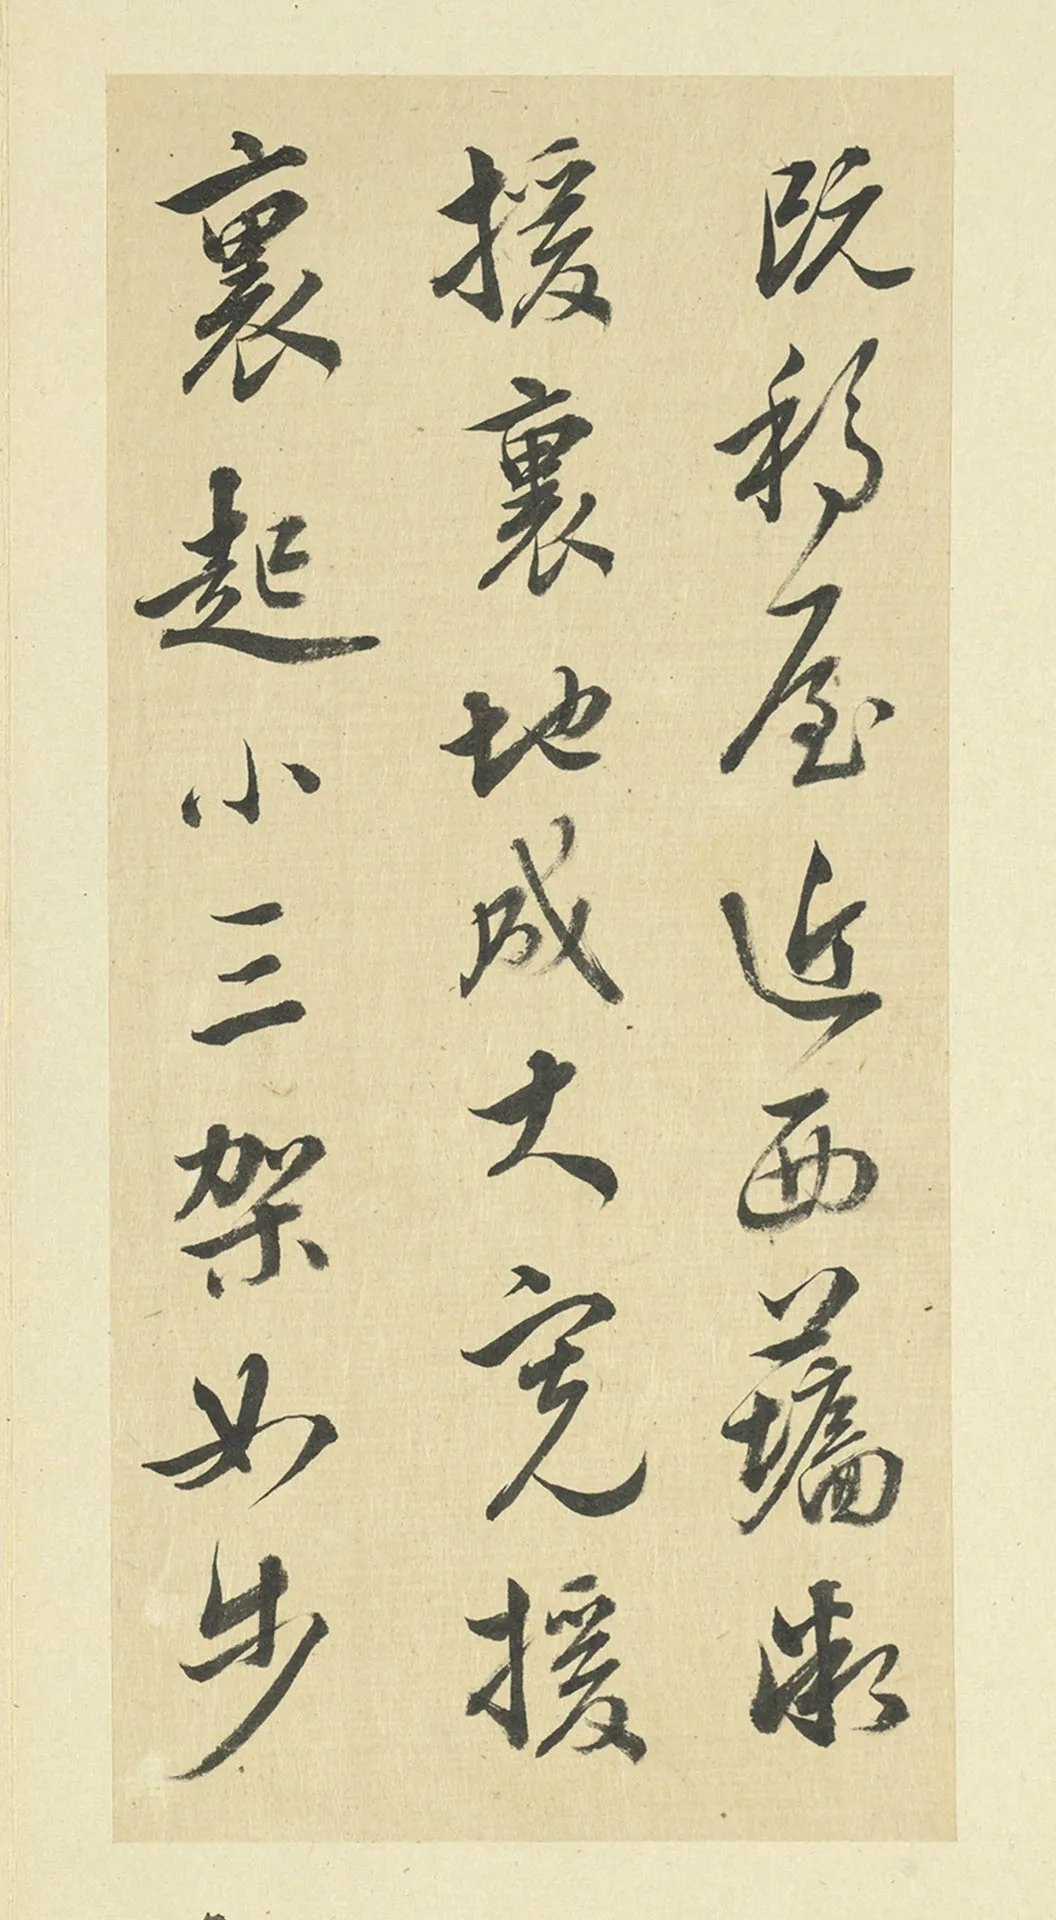 既移屋近西墻
援裏地成大寬援
裏起小三架如步